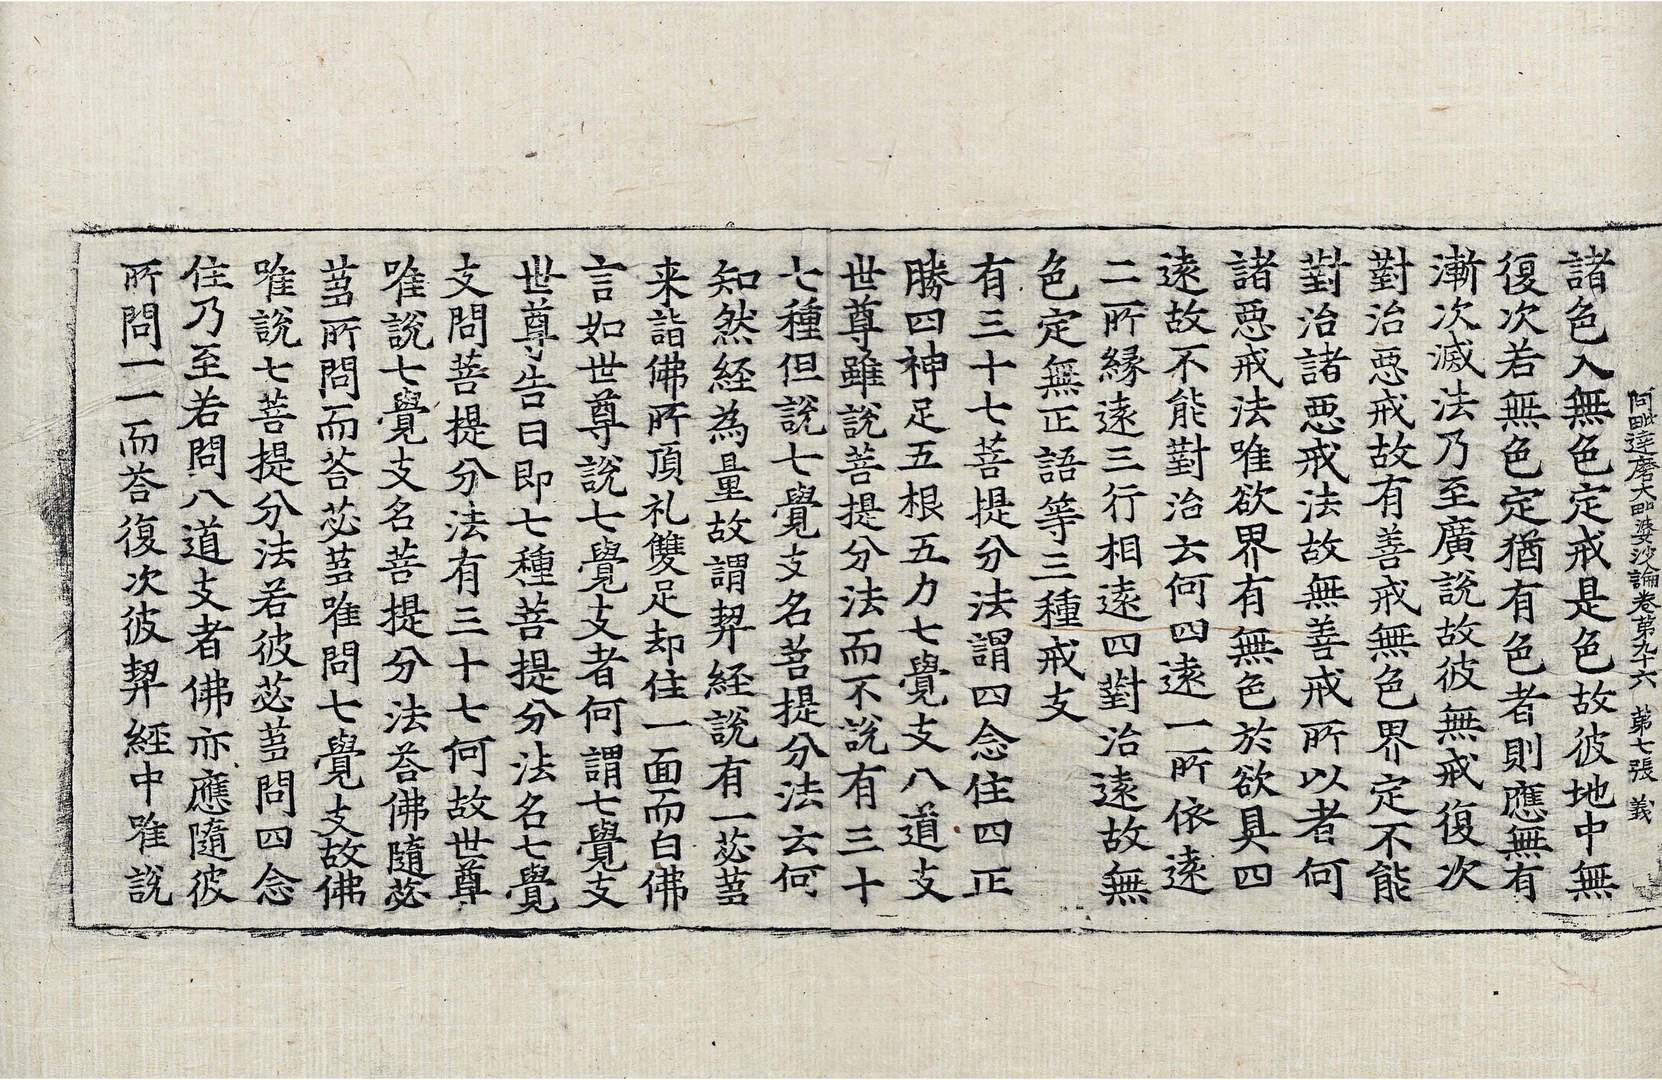 阿毗達磨大毗婆沙論卷第九十六 第七張 義
諸色入無色定戒是色故彼地中無
復次若無色定猶有色者則應無有
漸次滅法乃至廣說故彼無戒復次
對治惡戒故有善戒無色界定不能
對治諸惡戒法故無善戒所以者何
諸惡戒法唯欲界有無色於欲具四
遠故不能對治云何四遠一所依遠
二所緣遠三行相遠四對治遠故無
色定無正語等三種戒支
有三十七菩提分法謂四念住四正
勝四神足五根五力七覺支八道支
世尊雖說菩提分法而不說有三十
七種但說七覺支名菩提分法云何
知然經為量故謂契經說有一苾芻
来詣佛所頂礼雙足却住一面而白佛
言如世尊說七覺支者何謂七覺支
世尊告曰即七種菩提分法名七覺
支問菩提分法有三十七何故世尊
唯說七覺支名菩提分法荅佛隨苾
芻所問而荅苾芻唯問七覺支故佛
唯說七菩提分法若彼苾芻問四念
住乃至若問八道支者佛亦應隨彼
所問一一而荅復次彼契經中唯說